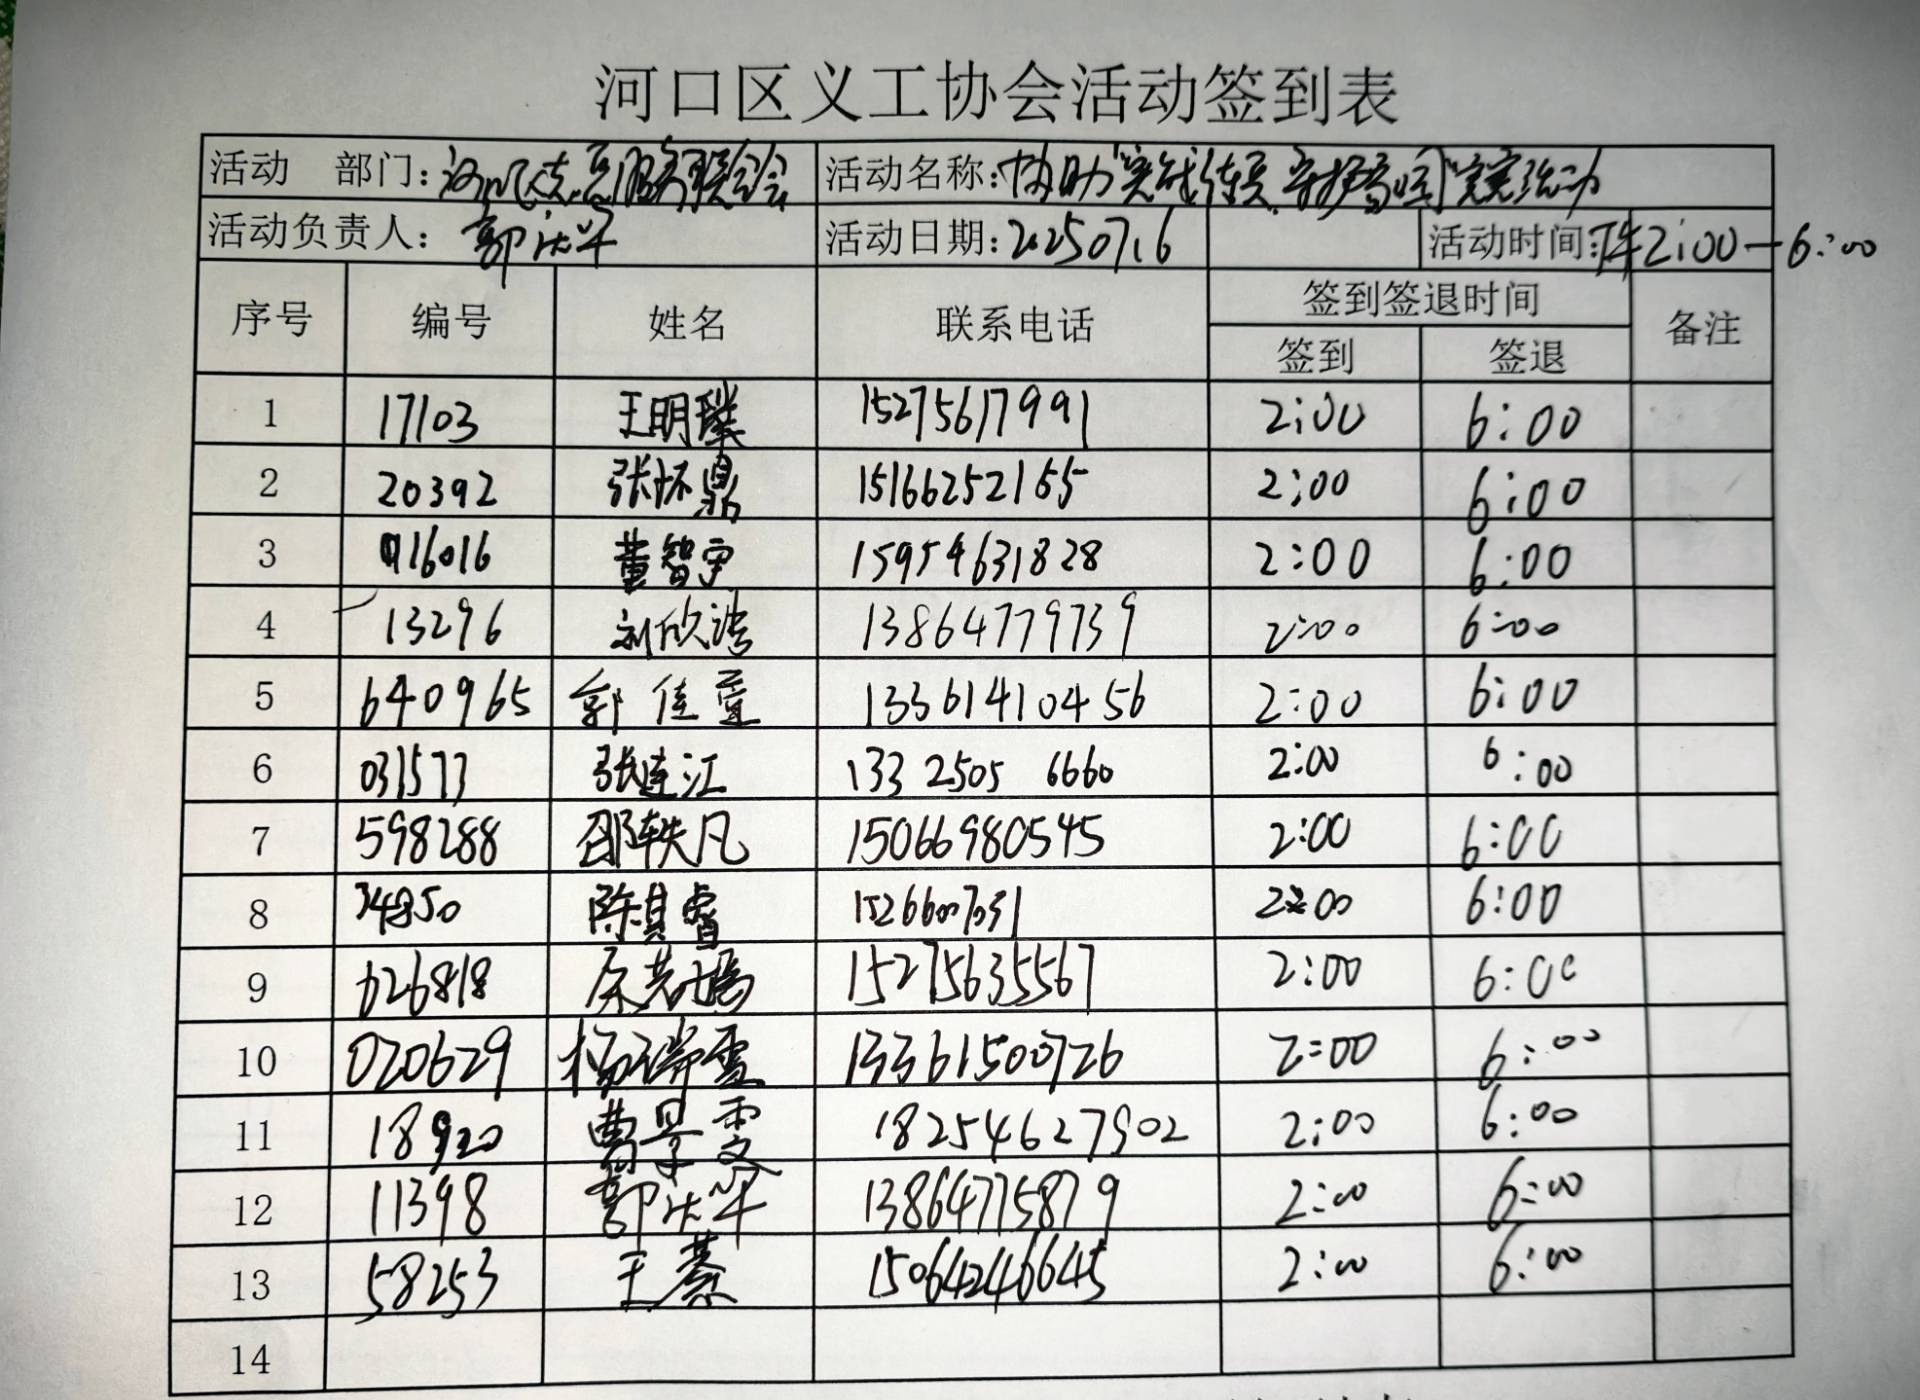 河口区义工协会活动签到表
活动 部门: 志愿服务联合会 活动名称: 协助
活动负责人: 郭 活动日期: 20250716 活动时间: 下午2:00—6:00
序号 编号 姓名 联系电话 签到签退时间 备注
签到 签退
1 17103 王明璞 15275617991 2:00 6:00
2 20392 张怀鼎 15166252165 2:00 6:00
3 016016 董智宇 15954631828 2:00 6:00
4 13296 刘欣浩 13864779739 2:00 6:00
5 640965 郭佳萱 13361410456 2:00 6:00
6 031577 张连江 133 2505 6660 2:00 6:00
7 598288 邵轶凡 15066980545 2:00 6:00
8 陈其睿 2:00 6:00
9 026818 15275635567 2:00 6:00
10 020629 杨瑞雪 13361500726 2:00 6:00
11 18920 曹景雯 18254627902 2:00 6:00
12 11398 郭 13864775879 2:00 6:00
13 58253 王綦 15064246645 2:00 6:00
14